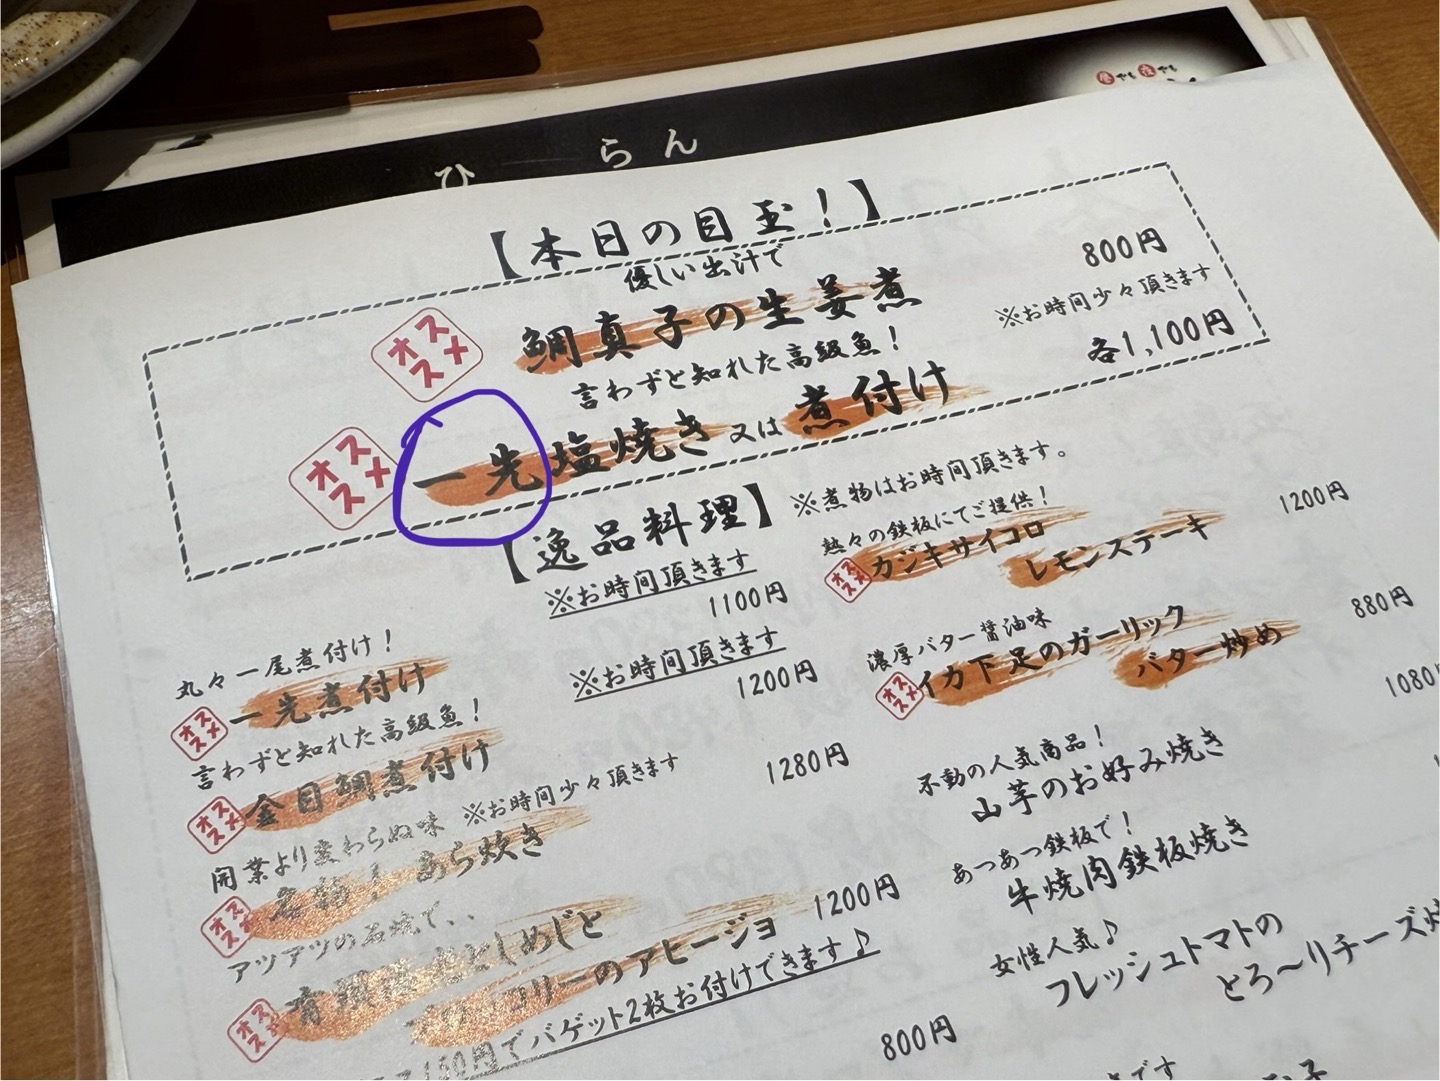 ひ らん
昼でも夜でも
【本日の目玉！】
優しい出汁で
オススメ 鯛真子の生姜煮 800円
※お時間少々頂きます
言わずと知れた高級魚！
オススメ 一先塩焼き又は煮付け 各1,100円
※煮物はお時間頂きます。
【逸品料理】
※お時間頂きます
1100円
丸々一尾煮付け！
オススメ 一先煮付け
※お時間頂きます
1200円
言わずと知れた高級魚！
オススメ 金目鯛煮付け
1280円
開業より変わらぬ味 ※お時間少々頂きます
オススメ あら炊き
アツアツの石焼で、、
オススメ としめじと
リーのアヒージョ
1200円
150円でバゲット2枚お付けできます♪
800円
熱々の鉄板にてご提供！
オススメ カジキサイコロ
レモンステーキ
1200円
濃厚バター醤油味
オススメ イカ下足のガーリック
バター炒め
880円
不動の人気商品！
山芋のお好み焼き
1080円
あつあつ鉄板で！
牛焼肉鉄板焼き
女性人気♪
フレッシュトマトの
とろ〜りチーズ焼
です